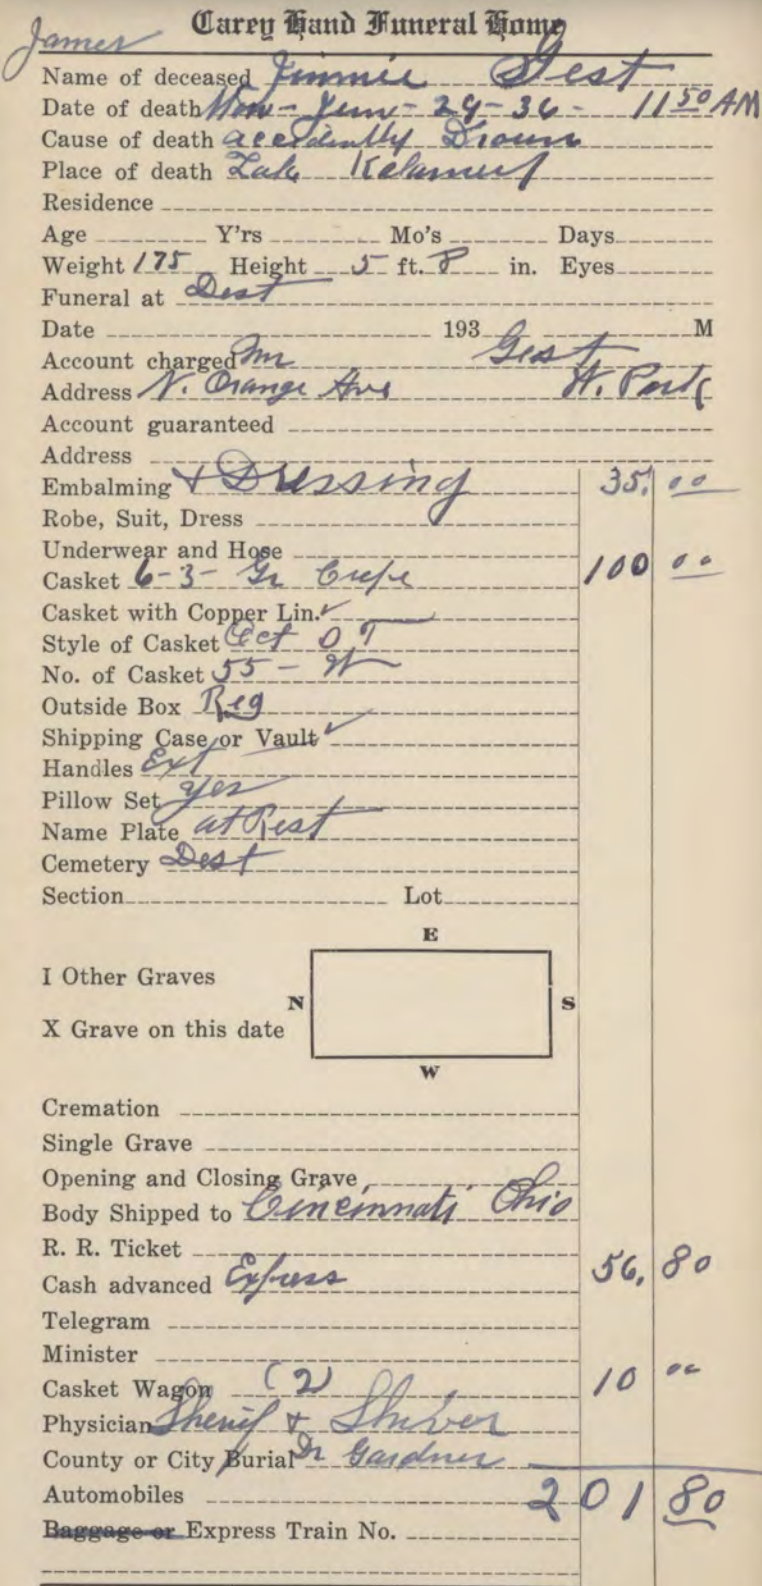 Carey Hand Funeral Home
James
Name of deceased Jimmie Gest
Date of death Mon - June - 29 - 36 - 11 50 AM
Cause of death accidently Drown
Place of death Lake
Residence
Age Y'rs Mo's Days
Weight 175 Height 5 ft. 8 in. Eyes
Funeral at Dest
Date 193 M
Account charged Mr Gest
Address N. Orange Ave W. Park
Account guaranteed
Address
Embalming + Dressing 35. 00
Robe, Suit, Dress
Underwear and Hose
Casket 6-3- Gr Crepe 100 00
Casket with Copper Lin. ✓
Style of Casket Oct
No. of Casket 55 -
Outside Box Reg
Shipping Case or Vault ✓
Handles Ext
Pillow Set yes
Name Plate at Rest
Cemetery Dest
Section Lot
E
I Other Graves
N S
X Grave on this date
W
Cremation
Single Grave
Opening and Closing Grave
Body Shipped to Cincinnati Ohio
R. R. Ticket
Cash advanced Express 56. 80
Telegram
Minister
Casket Wagon (2) 10 00
Physician Sherif +
County or City Burial Dr Gardner
Automobiles 201 80
Baggage or Express Train No.